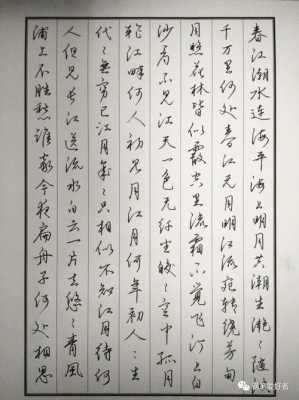 春江潮水连海平海上明月共潮生滟〻随
千万里何处春江无月明江流宛转绕芳甸
月照花林皆似霰空里流霜不觉飞汀上白
沙看不见江天一色无纤尘皎〻空中孤月
轮江畔何人初见月江月何年初人〻生
代〻无穷已江月年〻只相似不知江月待何
人但见长江送流水白云一片去悠〻青枫
浦上不胜愁谁家今夜扁舟子何处相思